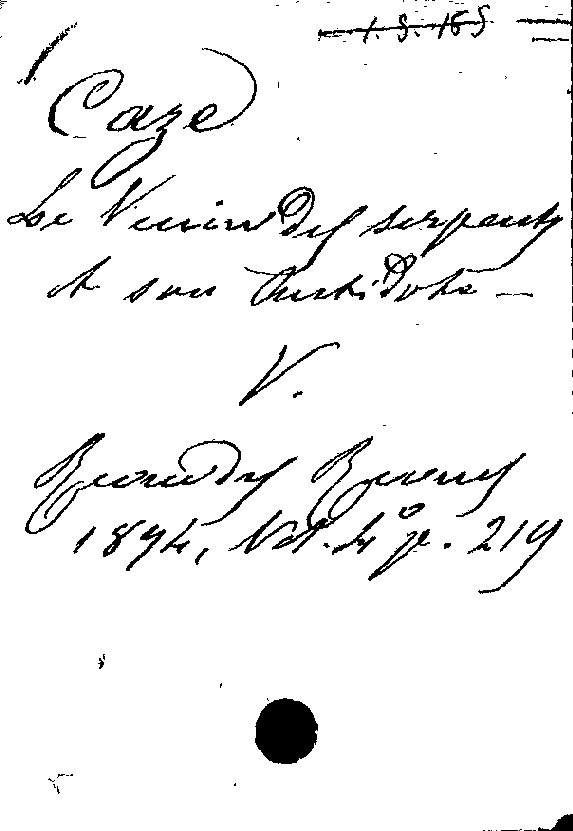 1. S. 165
Caze
Le Venin des serpents
et son Antidote —
V.
Revue des Revues
1894, Vol. 4° p. 219